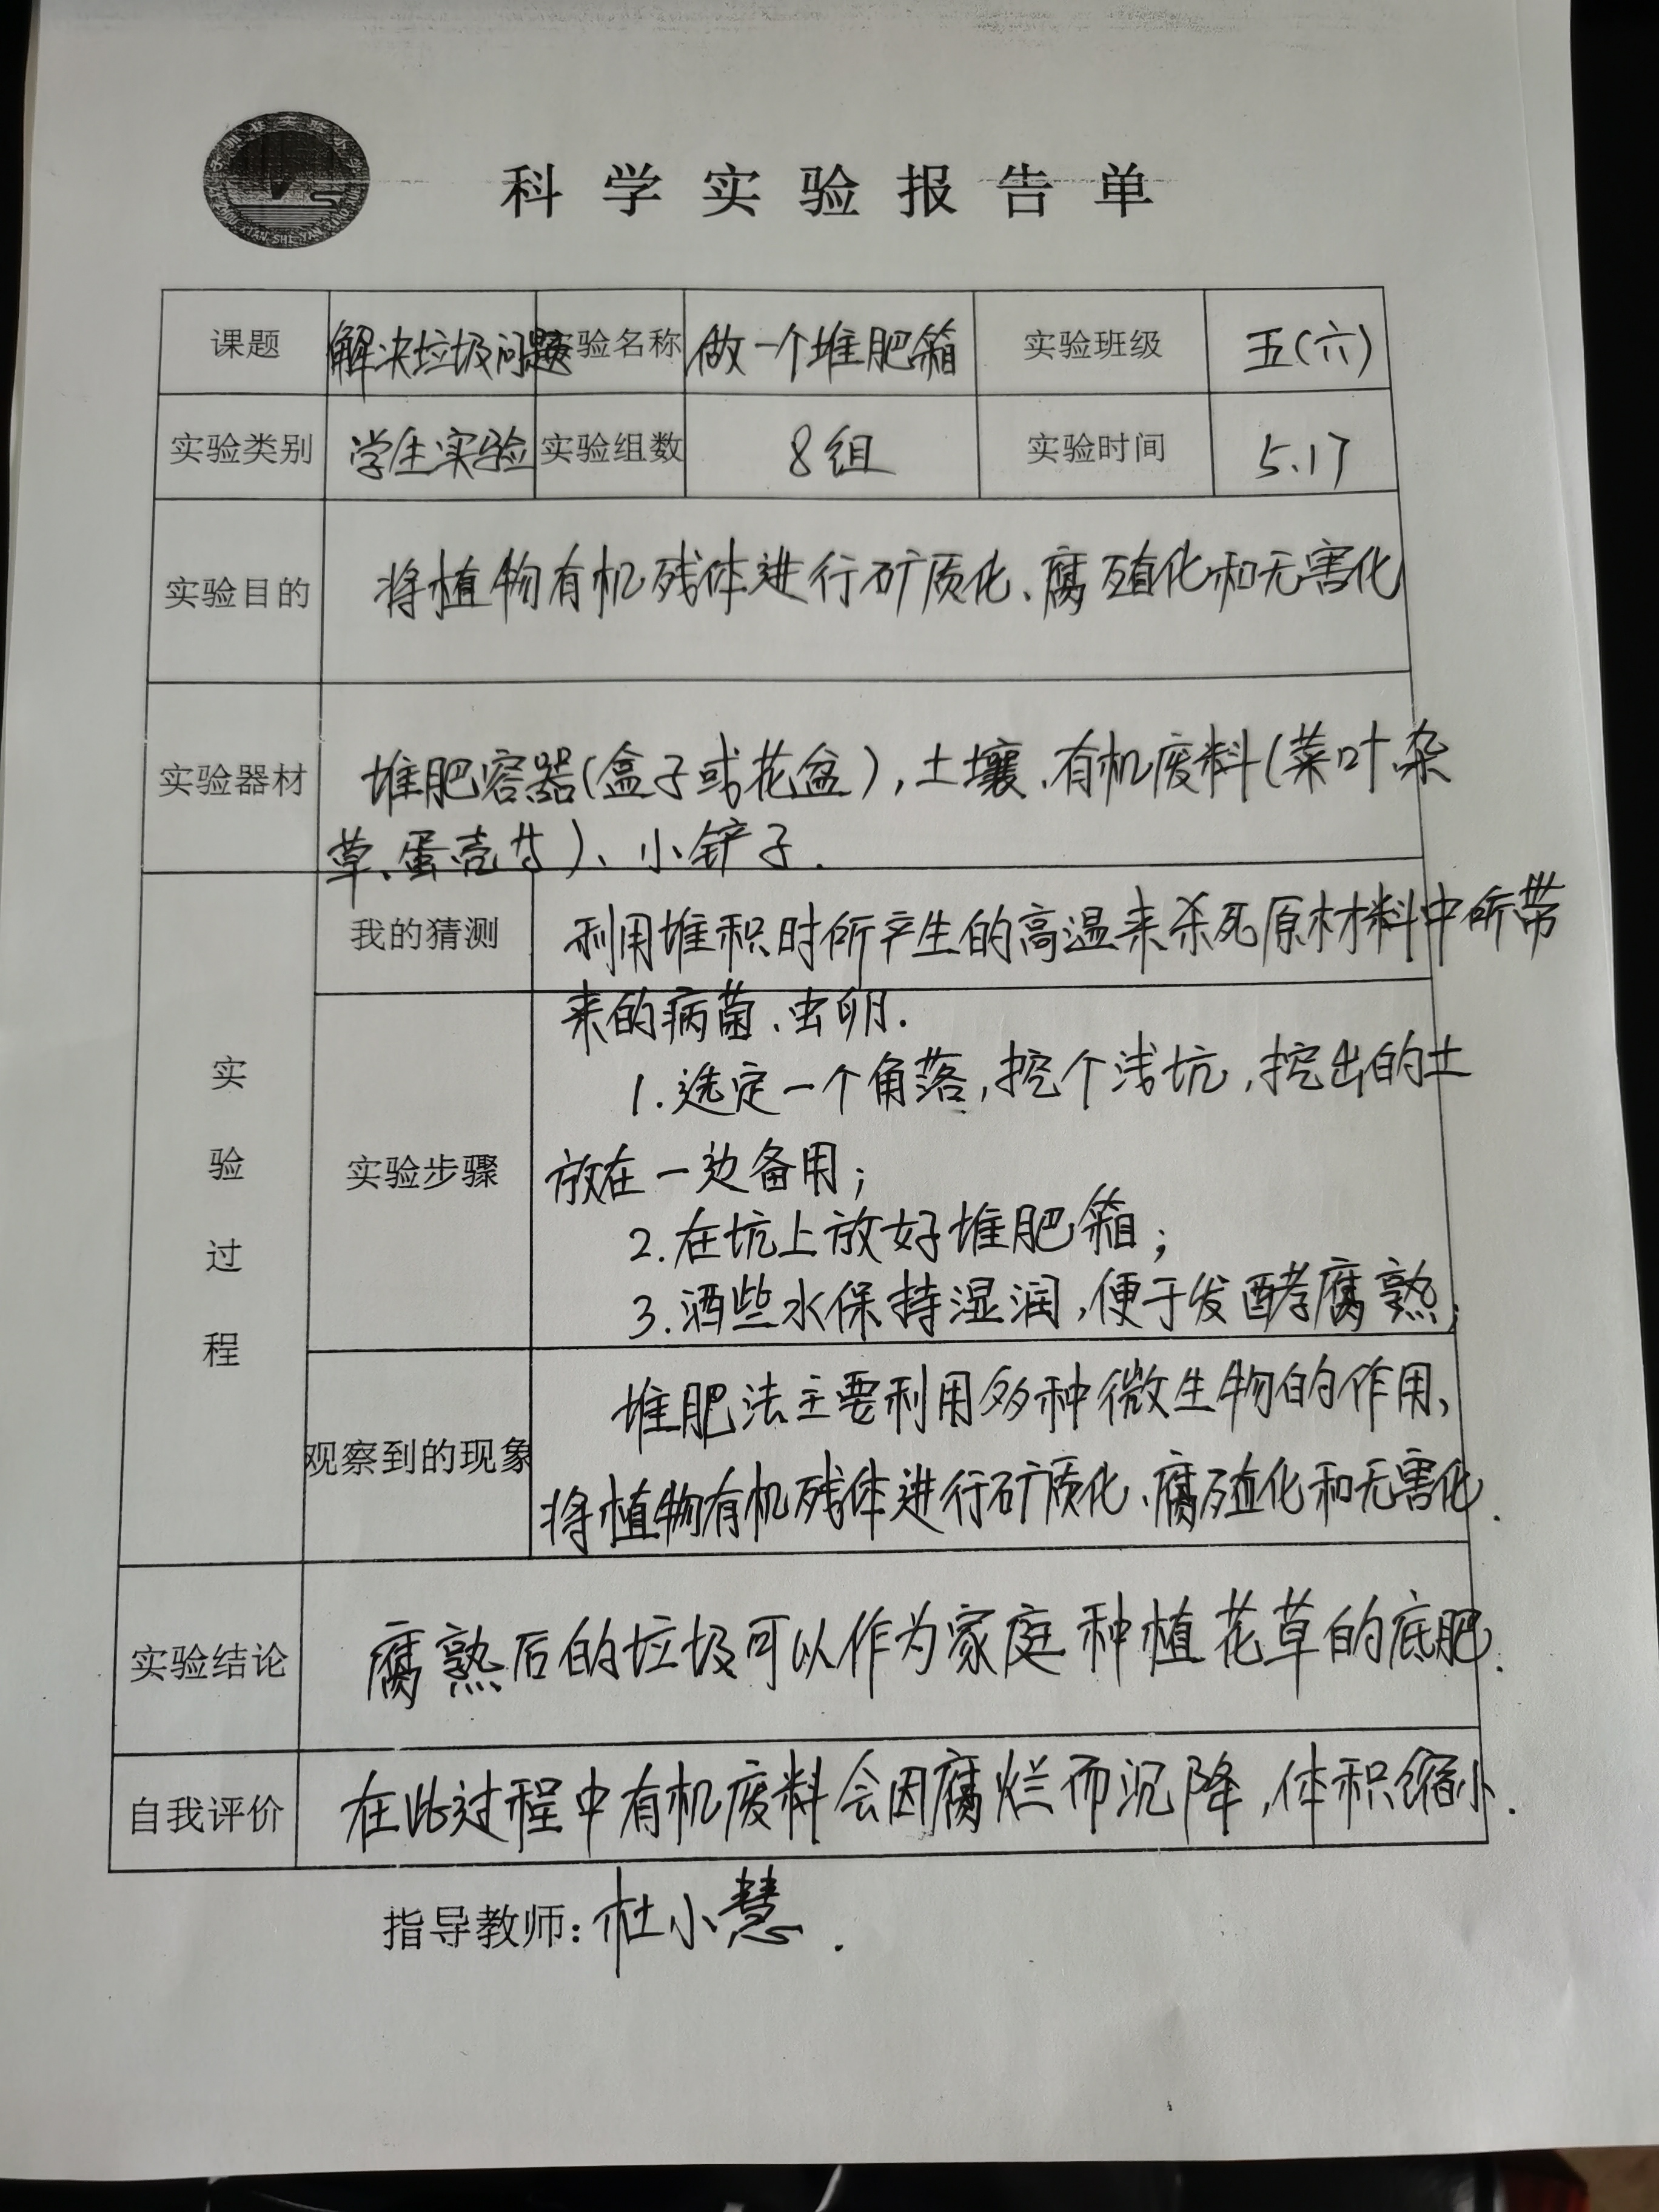 科学实验报告单
课题 解决垃圾问题 实验名称 做一个堆肥箱 实验班级 五(六)
实验类别 学生实验 实验组数 8组 实验时间 5.17
实验目的 将植物有机残体进行矿质化、腐殖化和无害化
实验器材 堆肥容器(盒子或花盆),土壤、有机废料(菜叶、杂
草、蛋壳等)、小铲子.
实验过程
我的猜测 利用堆积时所产生的高温来杀死原材料中所带
来的病菌、虫卵.
实验步骤
1.选定一个角落,挖个浅坑,挖出的土
放在一边备用;
2.在坑上放好堆肥箱;
3.洒些水保持湿润,便于发酵腐熟;
观察到的现象
堆肥法主要利用多种微生物的作用,
将植物有机残体进行矿质化、腐殖化和无害化.
实验结论 腐熟后的垃圾可以作为家庭种植花草的底肥.
自我评价 在此过程中有机废料会因腐烂而沉降,体积缩小.
指导教师:杜小慧.